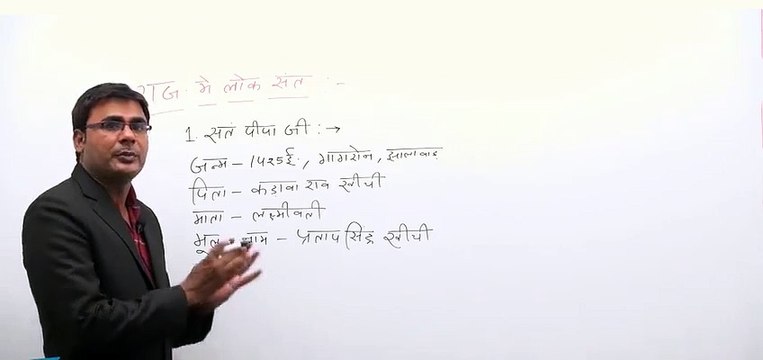 राज. मे लोक संत :-
1. संत पीपा जी :→
जन्म - 1425ई., गागरोन, झालावाड़
पिता - कडावा राव खीची
माता - लक्ष्मीवती
मूल नाम - प्रताप सिंह खीची